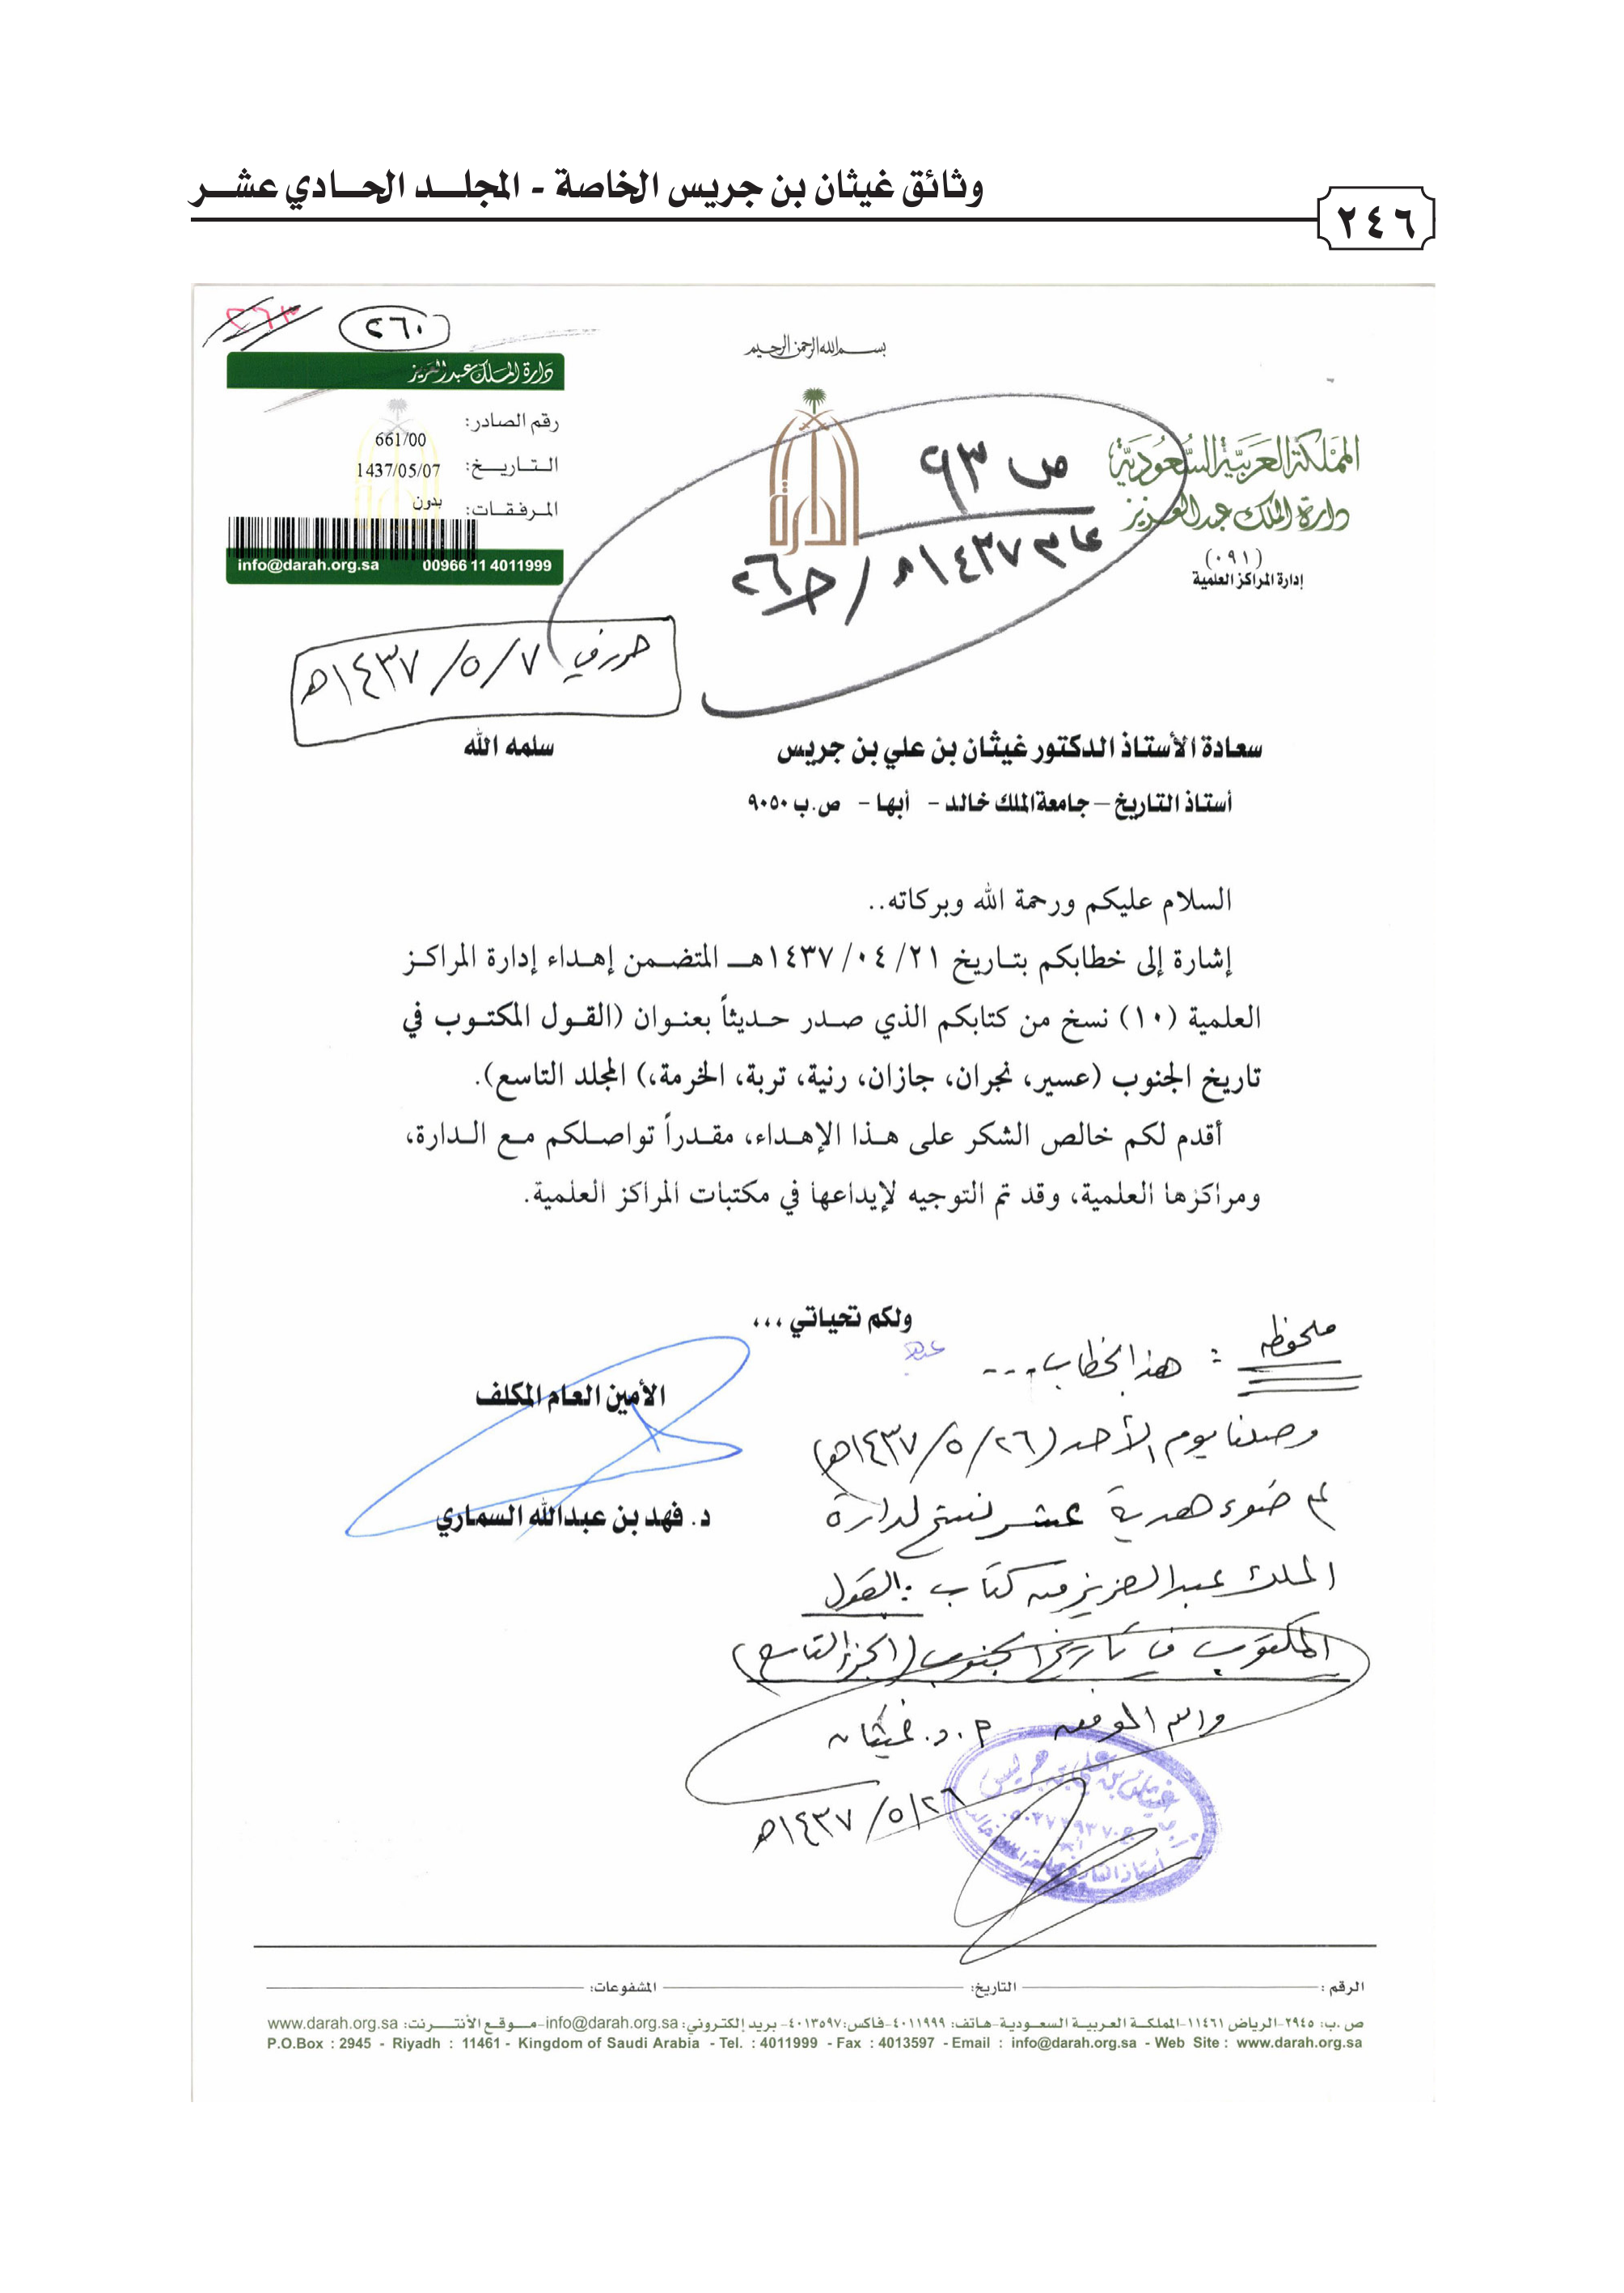 وثائق غيثان بن جريس الخاصة - المجلــد الحــادي عشــر
٢٤٦
٢٦٣
٢٦٠
بسم الله الرحمن الرحيم
دارة الملك عبدالعزيز
رقم الصادر: 661/00
التـاريـخ: 1437/05/07
المرفقـات: بدون
info@darah.org.sa 00966 11 4011999
المملكة العربية السعودية
دارة الملك عبدالعزيز
(٠٩١)
إدارة المراكز العلمية
الدارة
ص ٩٣
عام ١٤٣٧هـ / ج٢٦
حرر في ٧ / ٥ / ١٤٣٧هـ
سعادة الأستاذ الدكتور غيثان بن علي بن جريس سلمه الله
أستاذ التاريخ – جامعة الملك خالد - أبها - ص.ب ٩٠٥٠
السلام عليكم ورحمة الله وبركاته..
إشارة إلى خطابكم بتـاريخ ٢١/ ٠٤/ ١٤٣٧هــ المتضـمن إهـداء إدارة المراكـز
العلمية (١٠) نسخ من كتابكم الذي صـدر حـديثاً بعنـوان (القـول المكتـوب في
تاريخ الجنوب (عسير، نجران، جازان، رنية، تربة، الخرمة،) المجلد التاسع).
أقدم لكم خالص الشكر على هـذا الإهـداء، مقـدراً تواصـلكم مـع الـدارة،
ومراكزها العلمية، وقد تم التوجيه لإيداعها في مكتبات المراكز العلمية.
ولكم تحياتي ...
الأمين العام المكلف
د. فهد بن عبدالله السماري
ملحوظه : هذا الخطاب ...
وصلنا يوم الأحد (٢٦/ ٥/ ١٤٣٧هـ)
ضوء هدية عشر نسخ لدارة
الملك عبدالعزيز من كتاب : القول
المكتوب في تاريخ الجنوب (الجزء التاسع)
والله الموفق أ.د. غيثان
٢٦/ ٥/ ١٤٣٧هـ
غيثان بن علي بن جريس
الرقم : التاريخ: المشفوعات:
ص .ب: ٢٩٤٥-الرياض ١١٤٦١-المملكـة العربيـة السعوديـة-هاتف: ٤٠١١٩٩٩-فاكس:٤٠١٣٥٩٧- بريد إلكتروني: info@darah.org.sa-مــوقـع الأنتــرنت: www.darah.org.sa
P.O.Box : 2945 - Riyadh : 11461 - Kingdom of Saudi Arabia - Tel. : 4011999 - Fax : 4013597 - Email : info@darah.org.sa - Web Site : www.darah.org.sa